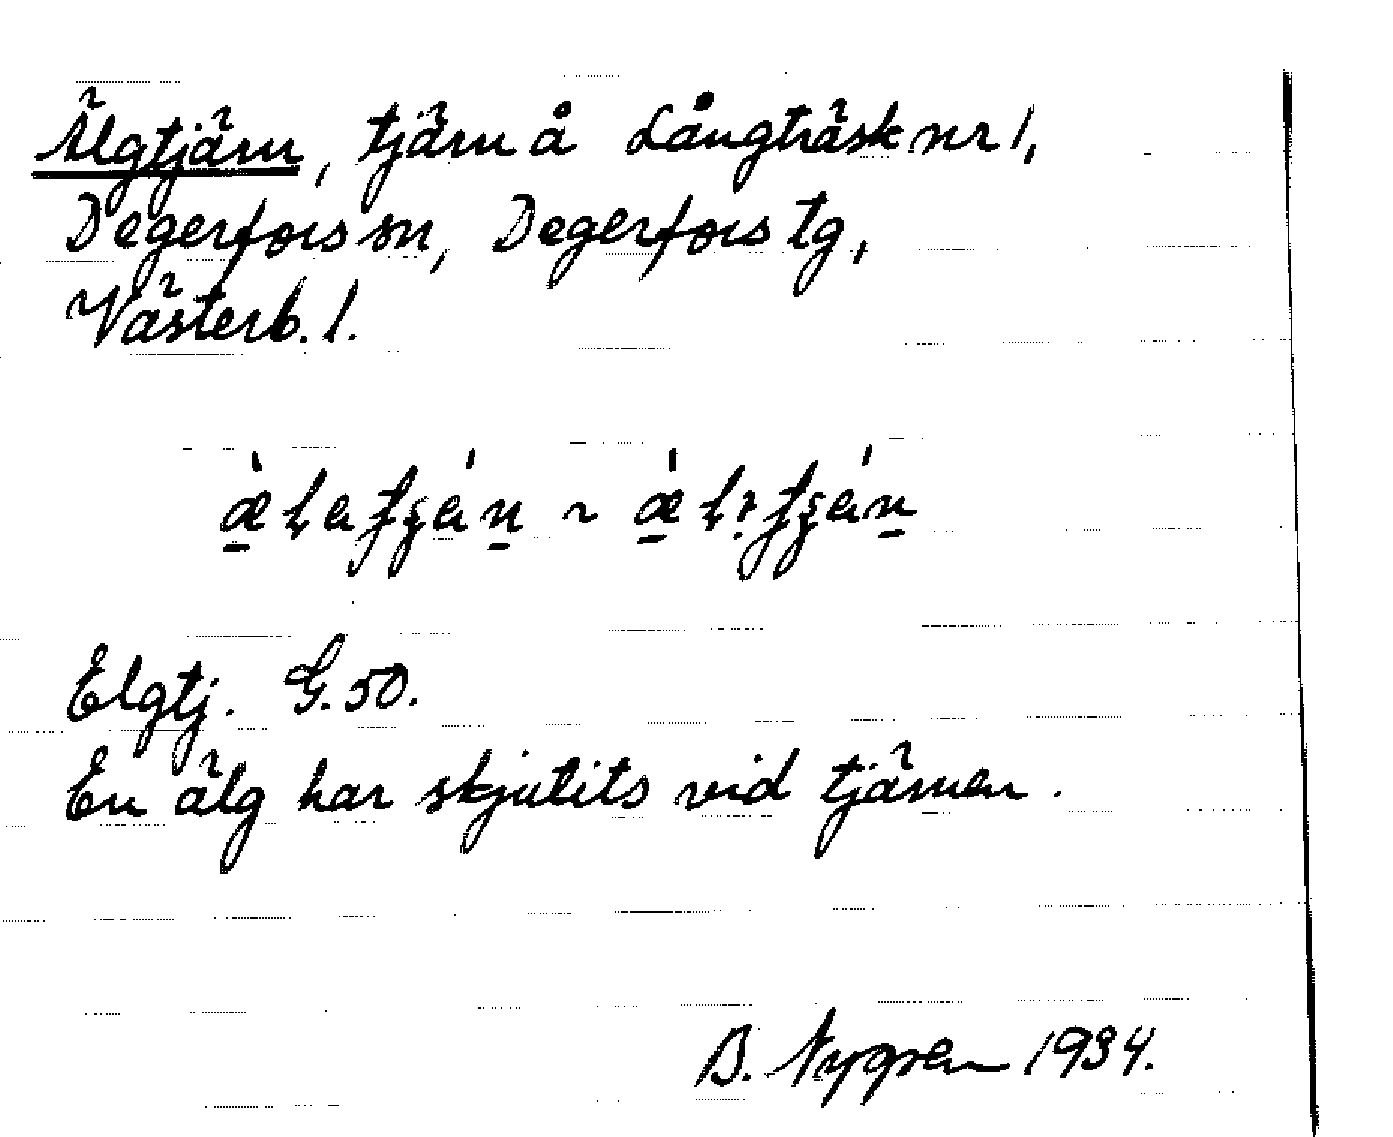 Älgtjärn, tjärn å Långträsk nr 1,
Degerfors sn, Degerfors tg,
Västerb. l.
Elgtj. G. 50.
En älg har skjutits vid tjärnen.
B. Nygren 1934.